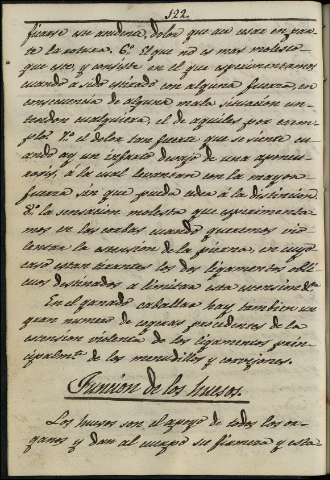 122
fiarse un andina, dolor que no cesar en par-
te la rotura. 6.º El que no es mas molesto
que este, y consiste en el que esperimentamos
cuando a sido estirado con alguna fuerza, en
consecuencia de alguna mala situacion un
tendon cualquiera, el de aquiles por exem-
plo. 7.º el dolor tan fuerte que se siente cu-
ando ay un infarto devajo de una aponeu-
rosis, á la cual levantan con la mayor
fuerza sin que pueda ceder á la distinsion.
8.º la sensacion molesta que esperimenta-
mos en las corbas cuando queremos vio-
lentar la estension de la pierna, en cuyo
caso estan tirantes los dos ligamentos obli-
cuos destinados a limitar esta estension dha.
En el ganado caballar hay tambien un
gran numero de cogeras procedentes de la
estension violenta de los ligamentos prin-
cipalmte. de los menudillos y corvejones.
Funcion de los huesos.
Los huesos son el apoyo de todos los or-
ganos y dan al cuerpo su firmeza y esta